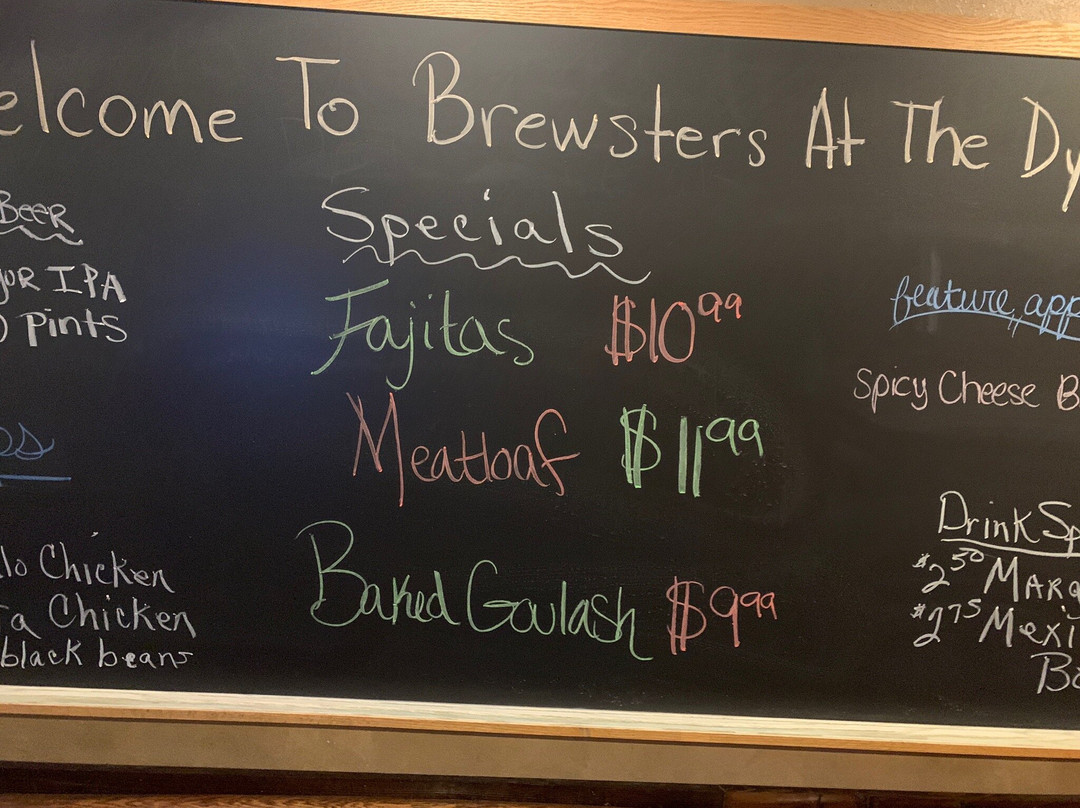 elcome To Brewsters At The Dy
Beer
IPA
pints
Chicken
Chicken
black beans
Specials
Fajitas $10.99
Meatloaf $11.99
Baked Goulash $9.99
feature app
Spicy Cheese B
Drink Sp
$2.50 Marg
$2.75 Mexi